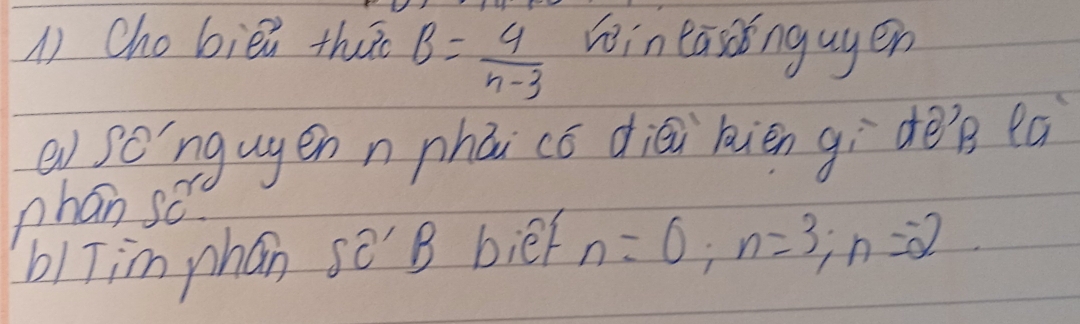 1) Cho biểu thức B = 4/(n-3) với n là số nguyên
a) Số nguyên n phải có điều kiện gì để B là
phân số.
b) Tìm phân số B biết n = 0; n = 3; n = -2.